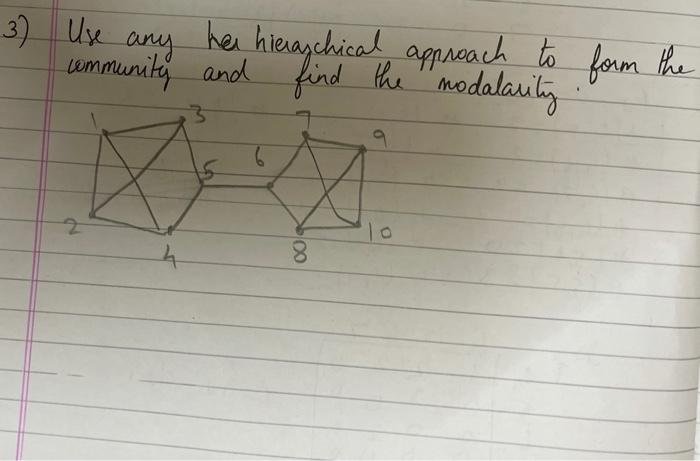 3) Use any her hierarchical approach to form the
community and find the modalarity.
1 3 7 9
5 6
2 4 8 10